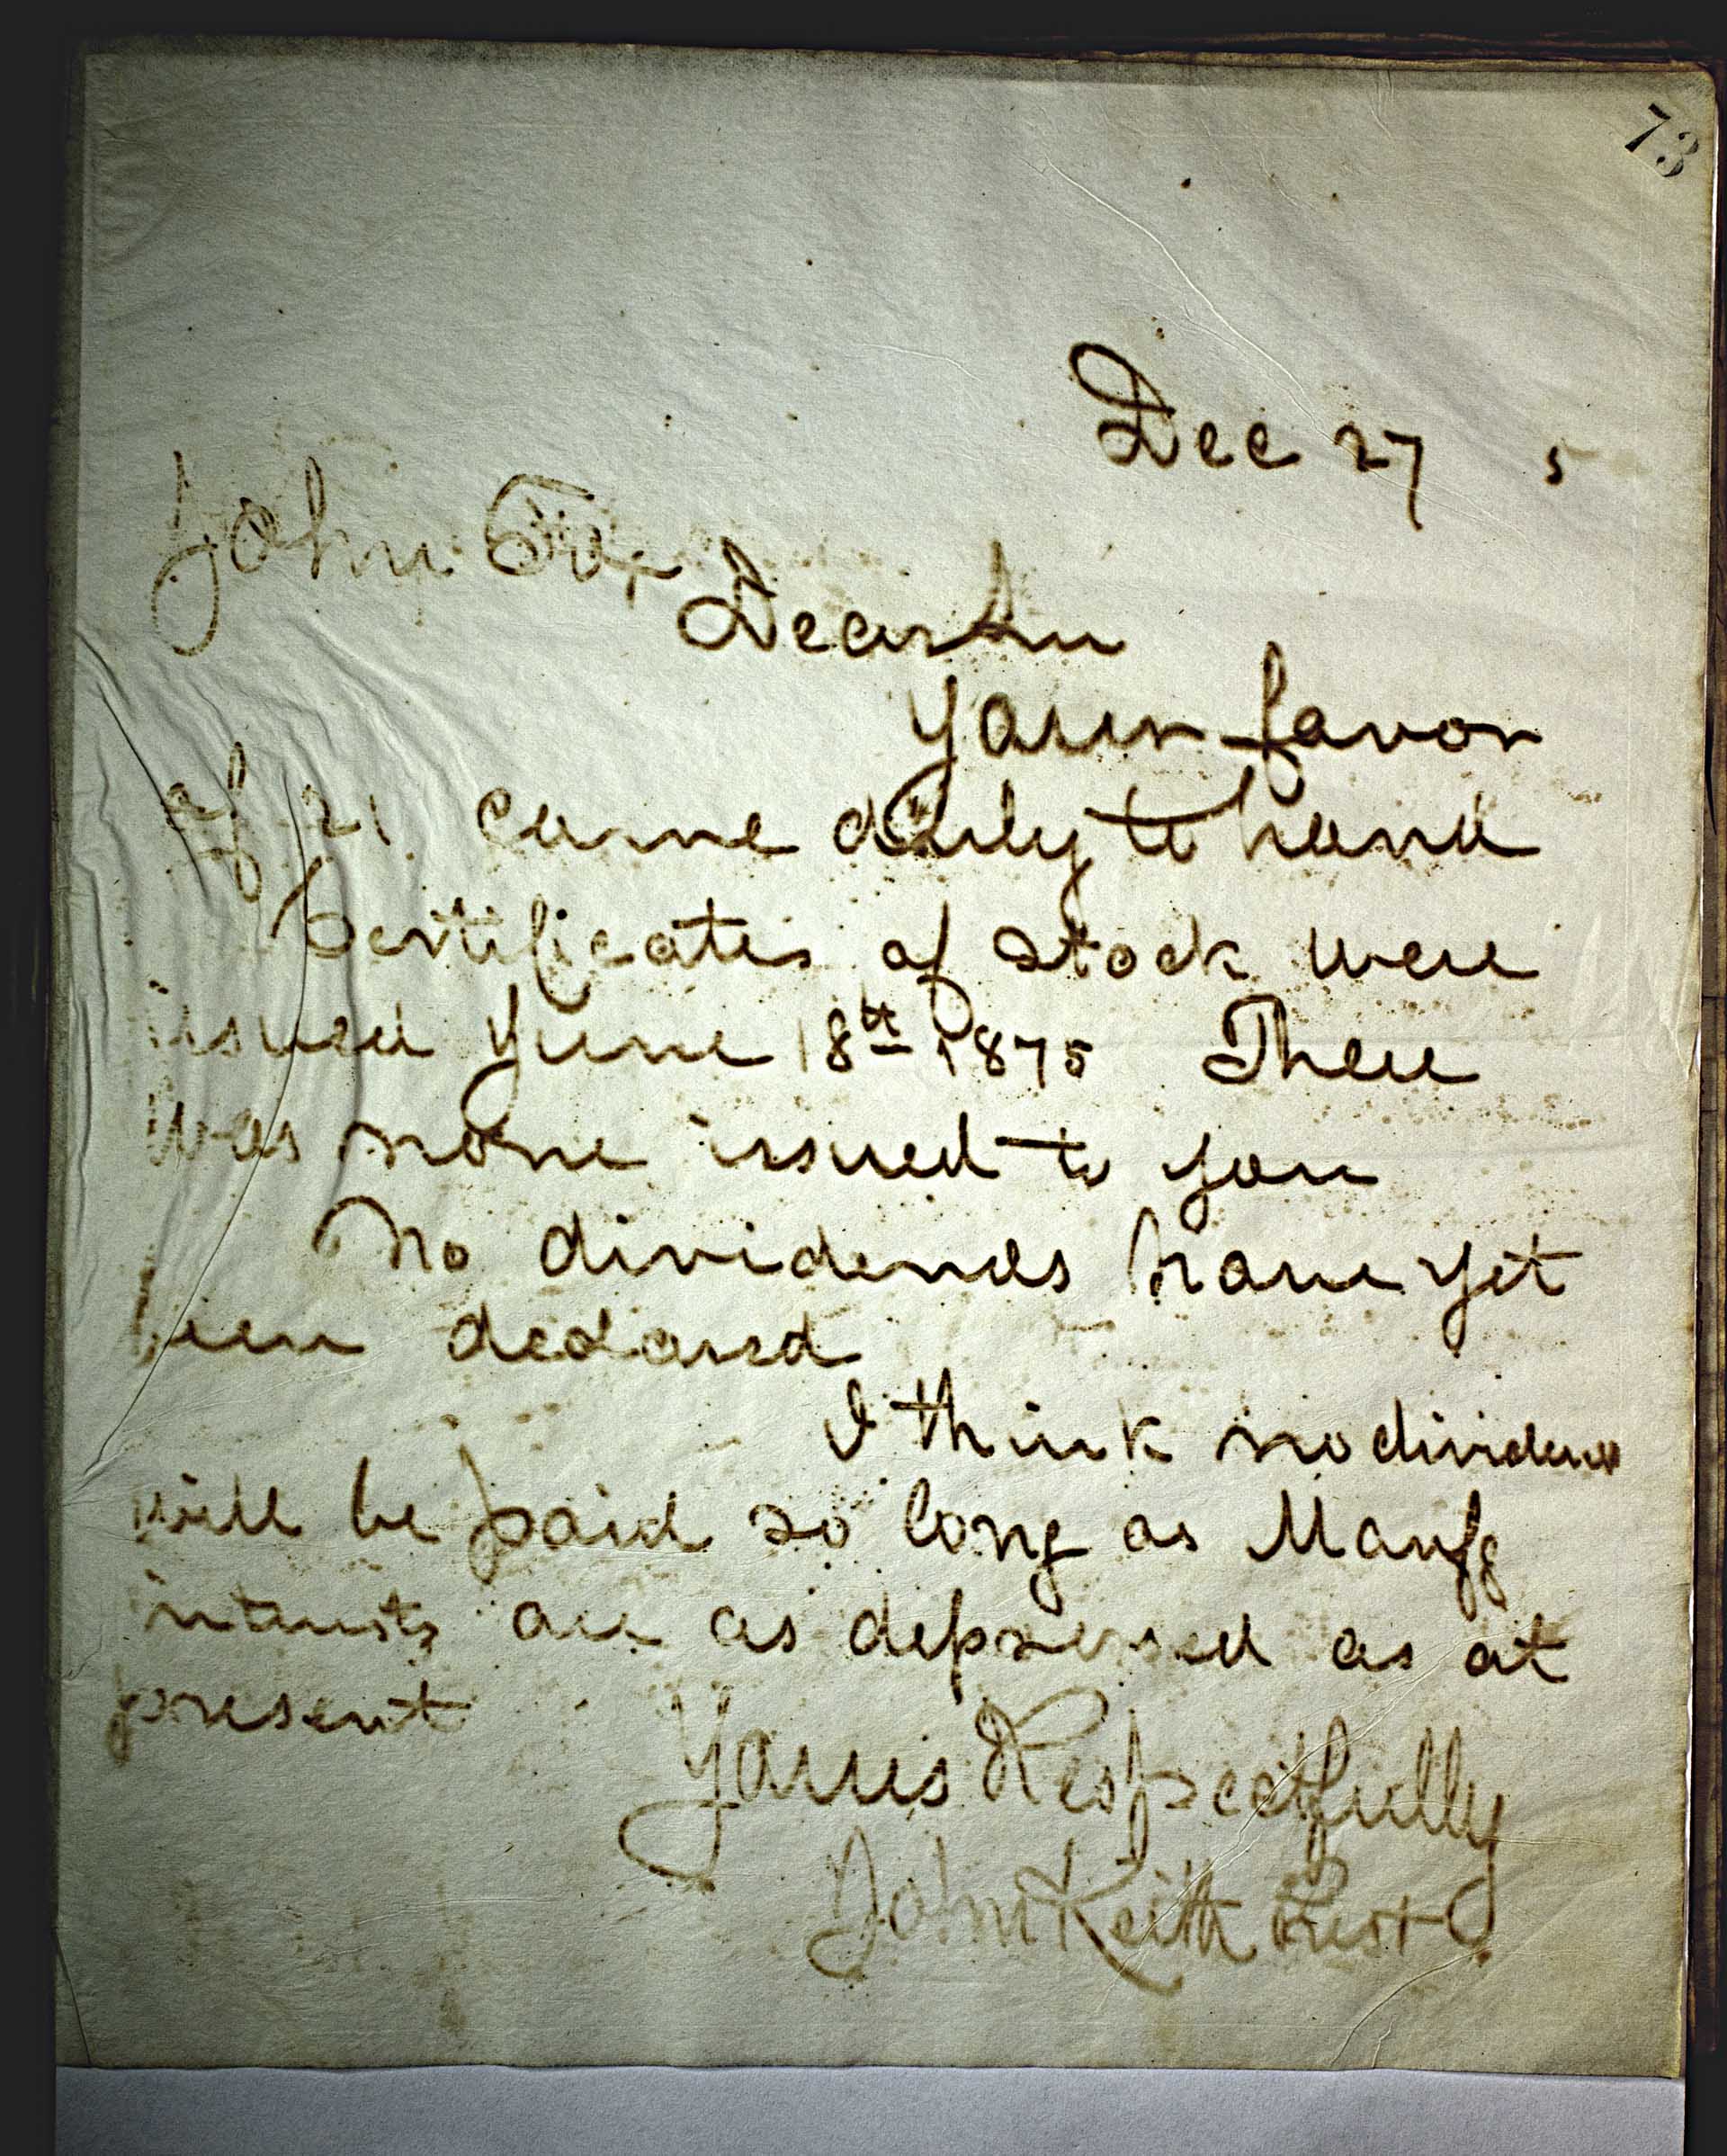 73
Dec 27 5
John Fox
Dear Sir
Your favor
of 21 came duly to hand
Certificates of stock were
issued June 18th 1875 There
was none issued to you
No dividends have yet
been declared
I think no dividend
will be paid so long as Manfg
interests are as depressed as at
present
Yours Respectfully
John Keith Prest